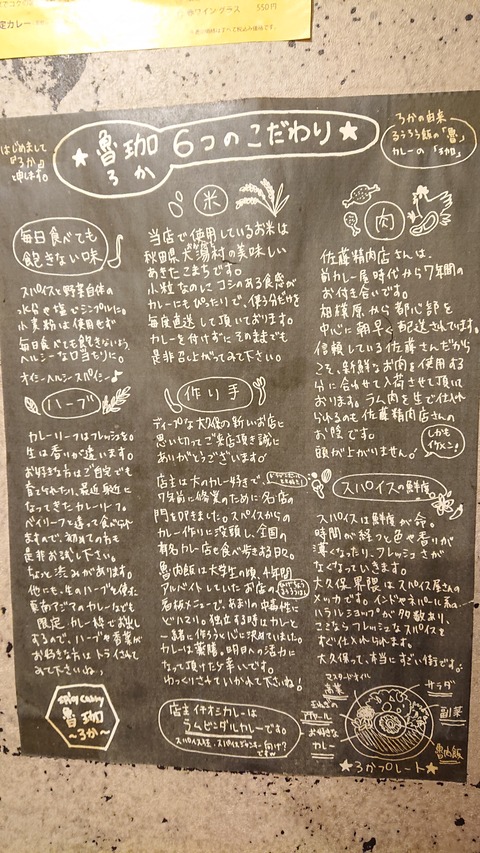 ワイングラス 550円
定カレー
はじめまして
『ろか』と
申します。
★魯珈 6つのこだわり★
ろか
ろかの由来
るうろう飯の「魯」
カレーの「珈」
毎日食べても
飽きない味
スパイスと野菜自体の
水分や塩でシンプルに。
小麦粉は使用せず
毎日食べても飽きないよう、
ヘルシーな口当たりに。
オイシーヘルシースパイシー♪
ハーブ
カレーリーフはフレッシュを。
生は香りが違います。
お好きな方はご自宅でも
育てられたり、最近身近に
なってきたカレーリーフ。
ベイリーフと違って食べられ
ますので、初めての方も
是非お試し下さい。
ちょっと渋みがあります。
他にも、生のハーブを使った
東南アジアのカレーなども
限定カレー枠でお出し
するので、ハーブや香菜が
お好きな方はトライされて
みて下さいね♪
spicy curry
魯珈
～ろか～
米
当店で使用しているお米は
秋田県大潟村の美味しい
あきたこまちです。
小粒なのにコシのある食感が
カレーにもぴったりで、使う分だけを
毎度直送して頂いております。
カレーを付けずにそのままでも
是非召し上がってみて下さい。
作り手
ディープな大久保の新しいお店に
思い切ってご来店頂き誠に
ありがとうございます。
店主は大のカレー好きで、
7年前に修業のために名店の
門を叩きました。スパイスからの
カレー作りに没頭し、全国の
有名カレー店を食べ歩きする日々。
魯肉飯は大学生の頃、4年間
アルバイトしていたお店の
看板メニューで、あまりの中毒性に
ドハマリ。独立する時はカレーと
一緒に作ろうと心に決めていました。
カレーは薬膳。明日への活力に
なって頂けたら幸いです。
ゆっくりされていかれて下さいね!
店主イチオシカレーは
ラムビンダルカレーです。
スパイス狂、スパイスジャンキー向け?
ですw
肉
佐藤精肉店さんは、
前カレー屋時代から7年間の
お付き合いです。
相模原から都心部を
中心に朝早く配送されています。
信頼している佐藤さんだから
こそ、新鮮なお肉を使用する
分に合わせて入荷させて頂いて
おります。ラム肉を生で仕入れ
られるのも佐藤精肉店さんの
お陰です。
頭が上がりません。
しかも
イケメン!
スパイスの鮮度
スパイスは鮮度が命。
時間が経つと色や香りが
薄くなったり、フレッシュさが
なくなっていきます。
大久保界隈はスパイス屋さんの
メッカです。インドやネパール系の
ハラルショップが多数あり、
ここならフレッシュなスパイスを
すぐ仕入れられます。
大久保って、本当にすごい街です。
マスタードオイル
高菜
玉ねぎの
アチャール
お好きな
カレー
サラダ
副菜
魯肉飯
★ろかプレート★